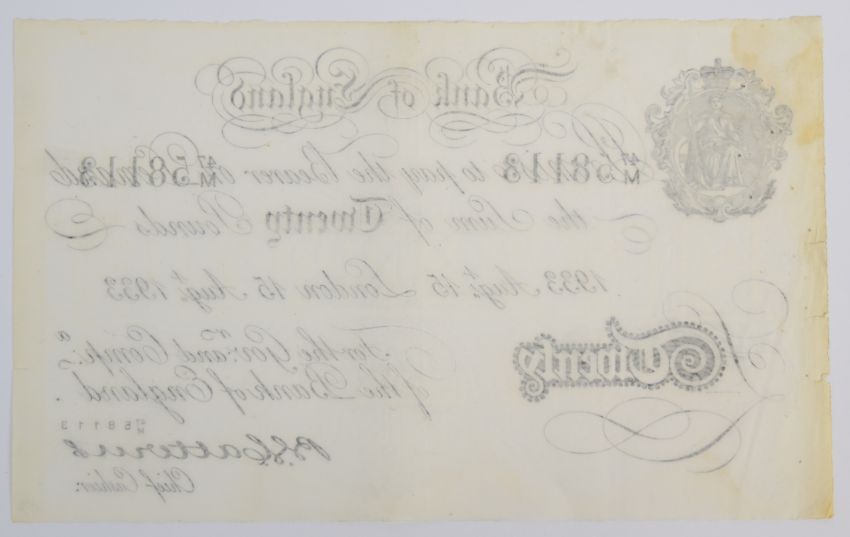 Bank of England
47/M 58113 I Promise to pay the Bearer on Demand 47/M 58113
the Sum of Twenty Pounds
1933 Augt. 15 London 15 Augt. 1933
For the Govr. and Compa.
of the Bank of England.
Twenty
47/M 58113
B.G. Catterns
Chief Cashier.